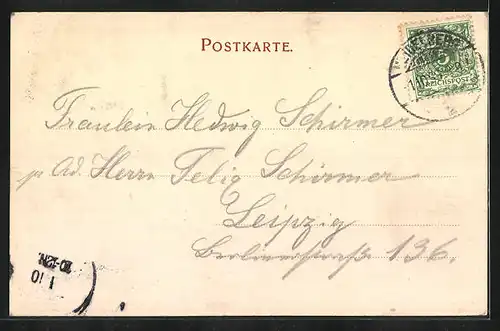 POSTKARTE.
5
REICHSPOST
Fräulein Hedwig Schirmer
p. Ad. Herrn Felix Schirmer
Leipzig
Berlinerstraße 136.
1 10
10-12N.